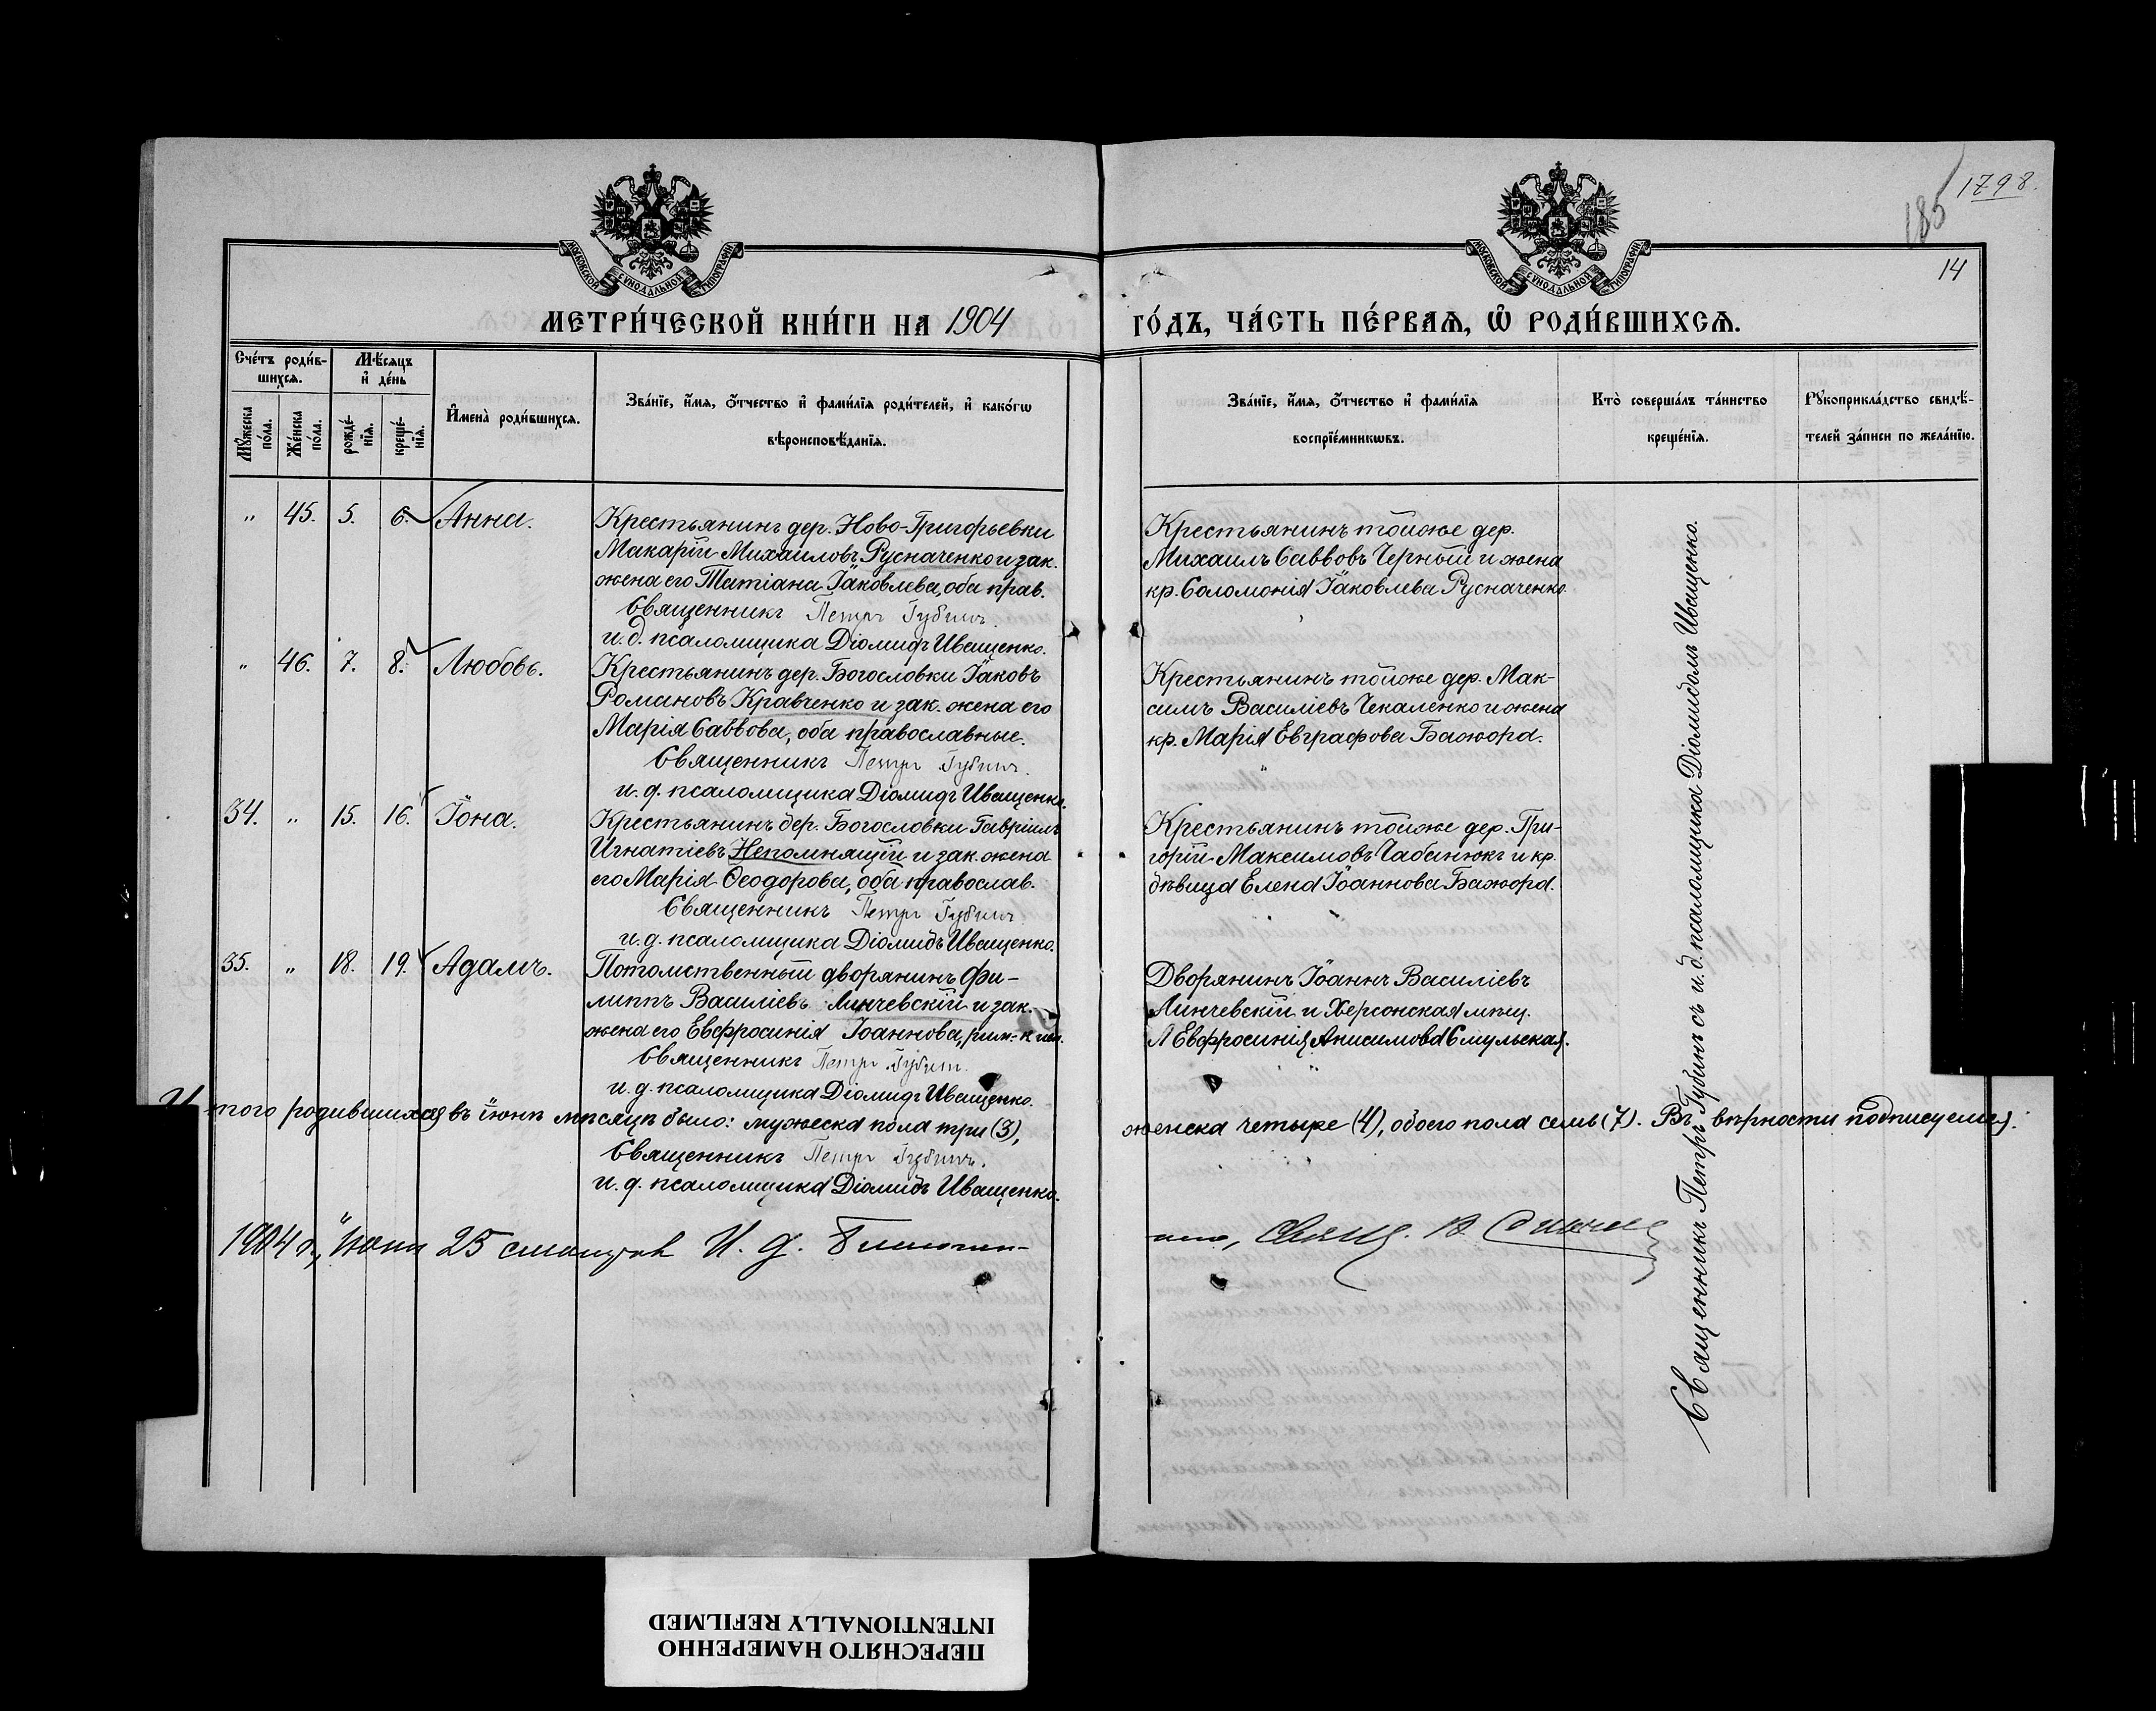 1798.
185
14
МОСКОВСКОЙ СѴНОДАЛЬНОЙ ТИПОГРАФІИ
МОСКОВСКОЙ СѴНОДАЛЬНОЙ ТИПОГРАФІИ
МЕТРИ́ЧЕСКОЙ КНИ́ГИ НА 1904 ГО́ДЪ, ЧА́СТЬ ПЕ́РВАЯ, Ѡ҆ РОДИ́ВШИХСЯ.
Сче́тъ роди́в-
шихся.
Мѣ́сяцъ
и҆ де́нь
Мꙋ́жеска
по́ла.
Же́нска
по́ла.
рожде́-
нїя.
креще́-
нїя.
И҆мена̀ роди́вшихся.
Зва́нїе, и҆́мя, ѻ҆́тчество и҆ фами́лїя роди́телей, и҆ како́гѡ
вѣроисповѣ́данїя.
Зва́нїе, и҆́мя, ѻ҆́тчество и҆ фами́лїя
воспрїе́мникѡвъ.
Кто̀ соверша́лъ та́инство
креще́нїя.
Рꙋкоприкла́дство свидѣ́-
телей за́писи по жела́нїю.
" 45. 5. 6. Анна.
Крестьянинъ дер. Ново-Григорьевки
Макарій Михаиловъ Русначенко и зак.
жена его Татіана Іаковлева, оба прав.
Священникъ Петръ Губинъ.
и. д. псаломщика Діомидъ Иващенко.
Крестьянинъ тойже дер.
Михаилъ Савововъ Черный и жена
кр. Соломонія Іаковлева Русначенко.
" 46. 7. 8. Любовь.
Крестьянинъ дер. Богословки Іаковъ
Романовъ Кравченко и зак. жена его
Марія Саввова, оба православные.
Священникъ Петръ Губинъ.
и. д. псаломщика Діомидъ Иващенко.
Крестьянинъ тойже дер. Мак-
симъ Василіевъ Чекаленко и жена
кр. Марія Евграфова Бажора.
34. " 15. 16. Іона.
Крестьянинъ дер. Богословки Гавріилъ
Игнатіевъ Непомнящій и зак. жена
его Марія Ѳеодорова, оба православ.
Священникъ Петръ Губинъ
и. д. псаломщика Діомидъ Иващенко.
Крестьянинъ тойже дер. Гри-
горій Максимовъ Чабанюкъ и кр.
дѣвица Елена Іоаннова Бажора.
35. " 18. 19. Адамъ.
Потомственный дворянинъ Фи-
липпъ Василіевъ Линчевскій и зак.
жена его Евфросинія Іоаннова, рим.-к
Священникъ Петръ Губинъ.
и. д. псаломщика Діомидъ Иващенко.
Дворянинъ Іоаннъ Василіевъ
Линчевскій и Херсонская мѣщ.
Евфросинія Анисимова Смульская.
Итого родившихся въ іюнѣ мѣсяцѣ было: мужеска пола три (3), женска четыре (4), обоего пола семь (7). Въ вѣрности подписуемся.
Священникъ Петръ Губинъ.
и. д. псаломщика Діомидъ Иващенко.
1904 г., Іюня 25 И. д. Свящ. В.
Священникъ Петръ Губинъ съ и. д. псаломщика Діомидомъ Иващенко.
ПЕРЕСНЯТО НАМЕРЕННО
INTENTIONALLY REFILMED